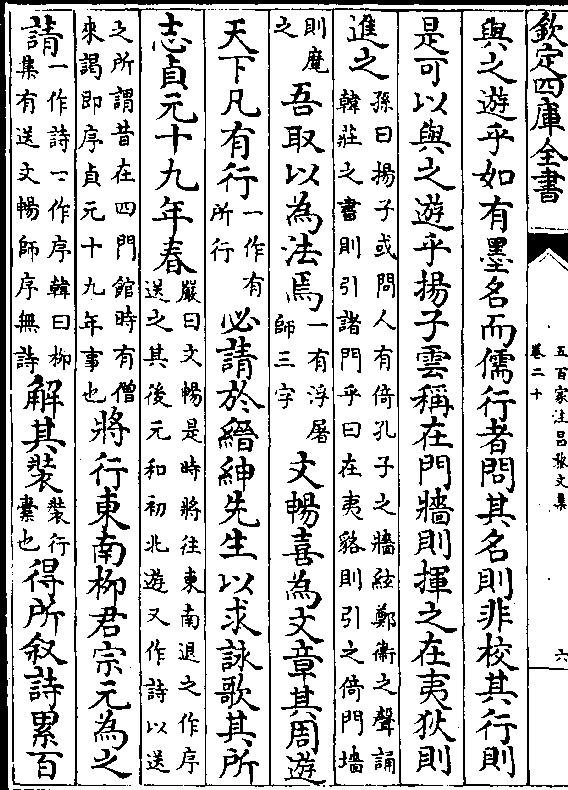 欽定四庫全書
五百家注昌黎文集
卷二十
六
與之遊乎如有墨名而儒行者問其名則非校其行則
是可以與之遊乎揚子雲稱在門牆則揮之在夷狄則
進之孫曰揚子或問人有倚孔子之牆絃鄭衛之聲誦
韓莊之書則引諸門乎曰在夷貉則引之倚門墻
則麾
之吾取以為法焉一有浮屠
師三字文暢喜為文章其周遊
天下凡有行一作有
所行必請於縉紳先生以求詠歌其所
志貞元十九年春嚴曰文暢是時將往東南退之作序
送之其後元和初北遊又作詩以送
之所謂昔在四門館時有僧
來謁即序貞元十九年事也將行東南柳君宗元為之
請一作詩一作序韓曰柳
集有送文暢師序無詩解其裝裝行
橐也得所叙詩累百